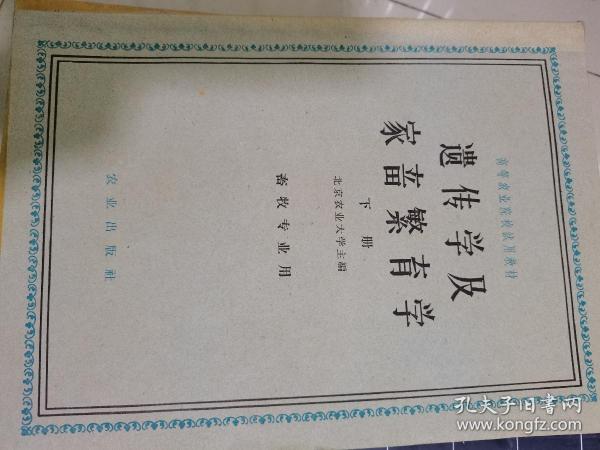 高等农业院校试用教材
遗传学及
家畜繁育学
下册
北京农业大学主编
畜牧专业用
农业出版社
孔夫子旧書网
www.kongfz.com